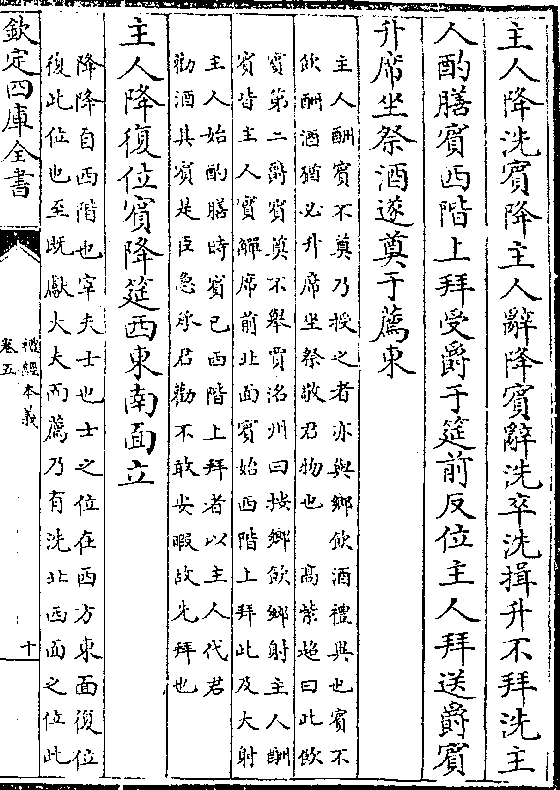 主人降洗賓降主人辭降賓辭洗卒洗揖升不拜洗主
人酌膳賓西階上拜受爵于筵前反位主人拜送爵賓
升席坐祭酒遂奠于薦東
主人酬賓不奠乃授之者亦與鄉飲酒禮異也賓不
飲酬酒猶必升席坐祭敬君物也　髙紫超曰此飲
賓第二爵賓奠不舉賈洺州曰按鄉飲鄉射主人酬
賓皆主人實觶席前北面賓始西階上拜此及大射
主人始酌膳時賓已西階上拜者以主人代君
勸酒其賓是臣急承君勸不敢安暇故先拜也
主人降復位賓降筵西東南面立
降降自西階也宰夫士也士之位在西方東面復位
復此位也至既獻大夫而薦乃有洗北西面之位此
欽定四庫全書
禮經本義
卷五
十